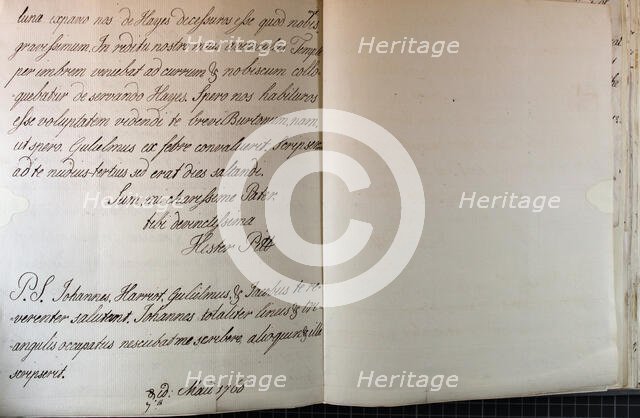 luna expavio nos de Hayes decessuros esse quod nobis
gravissimum. In reditu nostro meus avunculus Temple
per imbrem veniebat ad currum & nobiscum collo-
quebatur de servando Hayes. Spero nos habituros
esse voluptatem videndi te brevi Burtonum, nam,
ut spero, Gulielmus ex febre convaluerit, scripsissem
ad te nudus-tertius sed erat dies saltandi.
Sum, ex charissime Pater,
tibi devinctissima
Hester Pitt
P.S. Johannes, Harriot, Gulielmus, & Jacobus te re-
verenter salutant. Johannes totaliter lineis & tri-
angulis occupatus nesciebat me scribere, alioquin & ille
scripserit.
id: Maii 1766
7th
Heritage
Heritage
Heritage
Heritage
Heritage
Heritage
Heritage
Heritage
Heritage
©